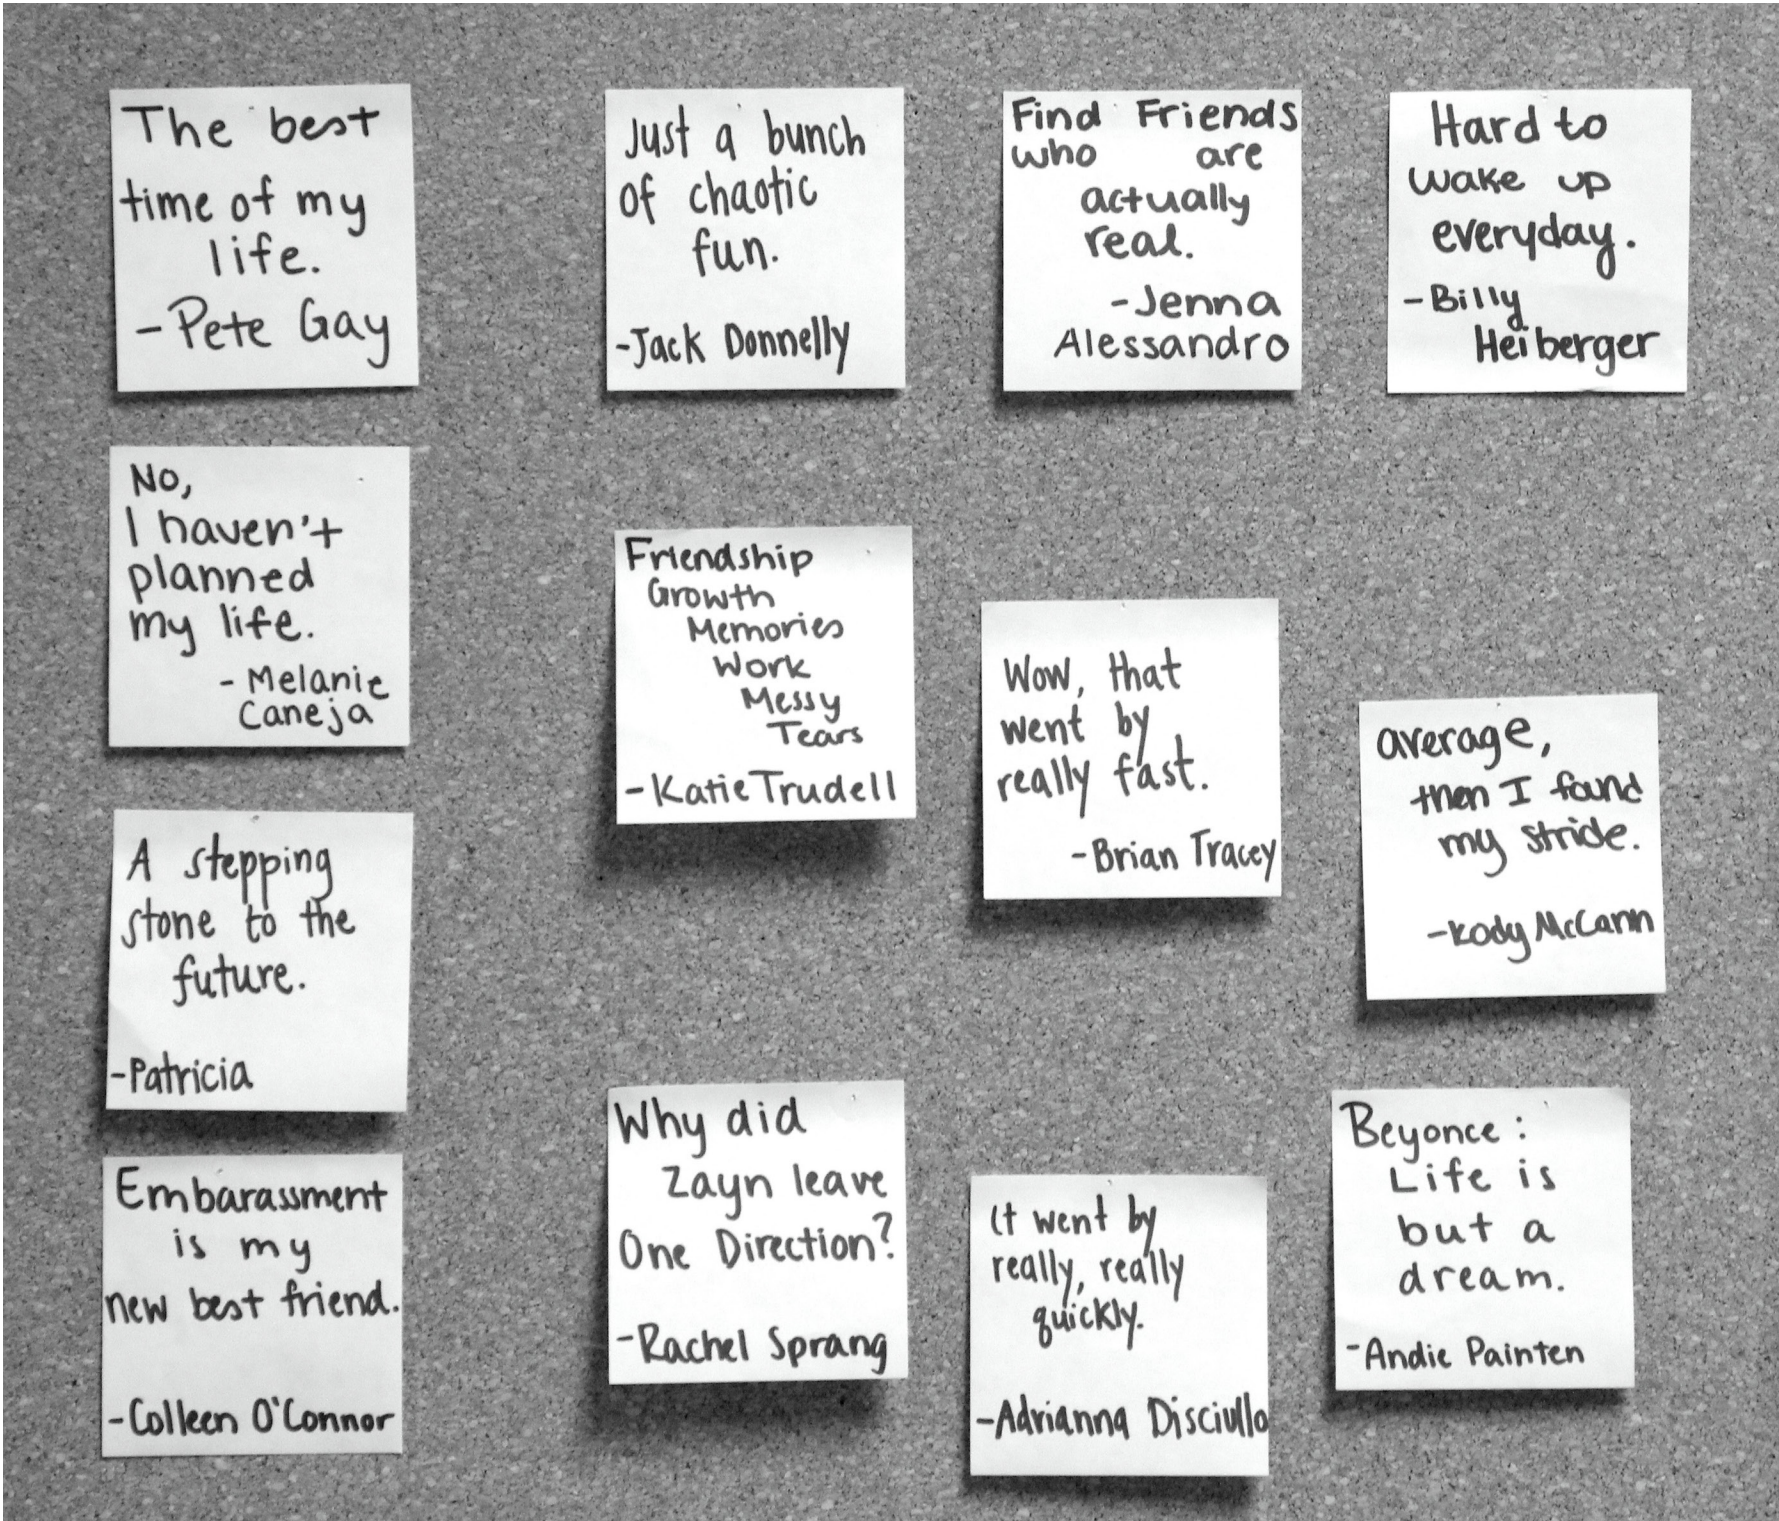 The best
time of my
life.
-Pete Gay
Just a bunch
of chaotic
fun.
-Jack Donnelly
Find Friends
who are
actually
real.
-Jenna
Alessandro
Hard to
wake up
everyday.
-Billy
Heiberger
No,
I haven't
planned
my life.
- Melanie
Caneja
Friendship
Growth
Memories
Work
Messy
Tears
-Katie Trudell
Wow, that
went by
really fast.
-Brian Tracey
average,
then I found
my stride.
-Kody McCann
A stepping
stone to the
future.
-Patricia
Embarassment
is my
new best friend.
-Colleen O'Connor
Why did
Zayn leave
One Direction?
-Rachel Sprang
It went by
really, really
quickly.
-Adrianna Disciullo
Beyonce:
Life is
but a
dream.
-Andie Painten